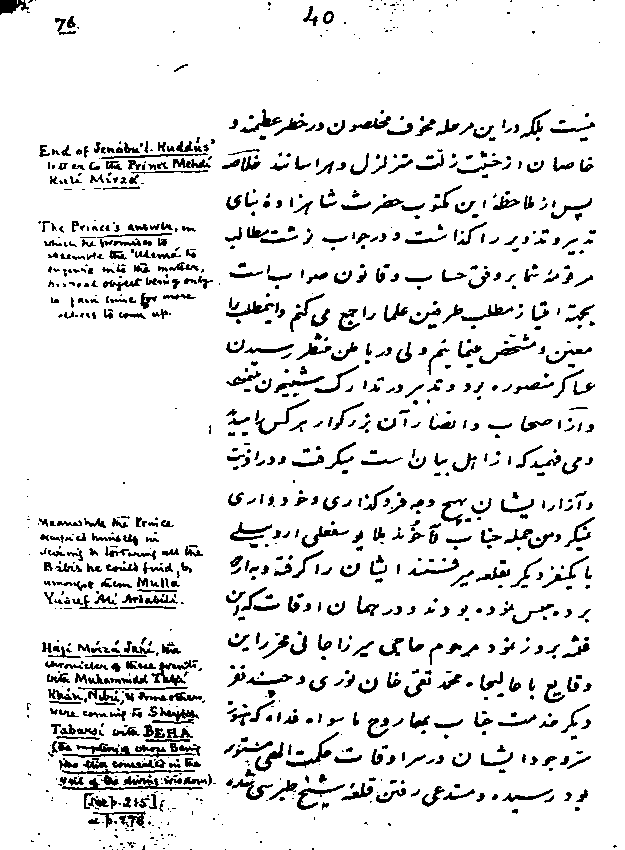 76
40
End of Jenábu'l-Kuddús'
letter to the Prince Mehdí
Kulí Mírzá.
The Prince's answer, in
which he promises to
assemble the 'Ulemá to
enquire into the matter,
his real object being only
to gain time for more
to come up.
Meanwhile the Prince
occupied himself in
seizing & torturing all the
Bábís he could find,
amongst them Mulla
Yúsuf 'Alí Ardabílí.
Hájí Mírzá Jání, the
chronicler of these events,
with Muhammad Takí
Khán, Núrí, & some others,
were coming to Sheykh
Tabarsí with BEHA
(the mystery of whose Being
was then concealed in the
veil of the divine wisdom)
[See p. 215];
نیست بلکه در این مرحله مخوف مخلصون در خطر عظیمند و
خاصان از خشیت زلت متزلزل و هراسانند خلاصه
پس از ملاحظهٔ این مکتوب حضرت شاهزاده بنای
تدبیر و تذویر را گذاشت و در جواب نوشت مطالب
مرقومه شما بر وفق حساب و قانون صواب است
بجهته امتیاز مطلب طرفین علما را جمع می کنم و اینمطلب را
معین و مشخص مینمایم ولی در باطن منتظر رسیدن
عساکر منصوره بود و تدبیر در تدارک شبیخون مینمود
و از اصحاب و انصار آن بزرگوار هر کس را میدید
و می فهمید که از اهل بیان است میگرفت و در اذیت
و آزار ایشان بهیچ وجه فروگذاری و خودداری
نمیکرد من جمله جناب آخوند ملا یوسفعلی اردبیلی
با یکنفر دیگر بقلعه میرفتند ایشان را گرفته و بساری
برده حبس نموده بودند و در همان اوقات که این
فتنه بروز نمود مرحوم حاجی میرزا جانی محرر این
وقایع با عالیجاه محمد تقی خان نوری و چند نفر
دیگر خدمت جناب بهاء روح ما سواه فداه که هنوز
سر وجود ایشان در سرادقات حکمت الهی مستور
بود رسیده و مستدعی رفتن قلعه شیخ طبرسی شده